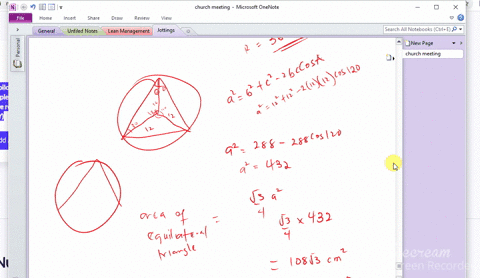 church meeting - Microsoft OneNote
File
Home
Insert
Share
Draw
Review
View
General
Unfiled Notes
Lean Management
Jottings
Search All Notebooks (Ctrl+E)
Personal
New Page
church meeting
a² = b² + c² - 2bc cos A
a² = 12² + 12² - 2(12)(12) cos 120
12
12
a² = 288 - 288 cos 120
a² = 432
area of equilateral triangle = √3/4 a²
√3/4 × 432
= 108√3 cm²